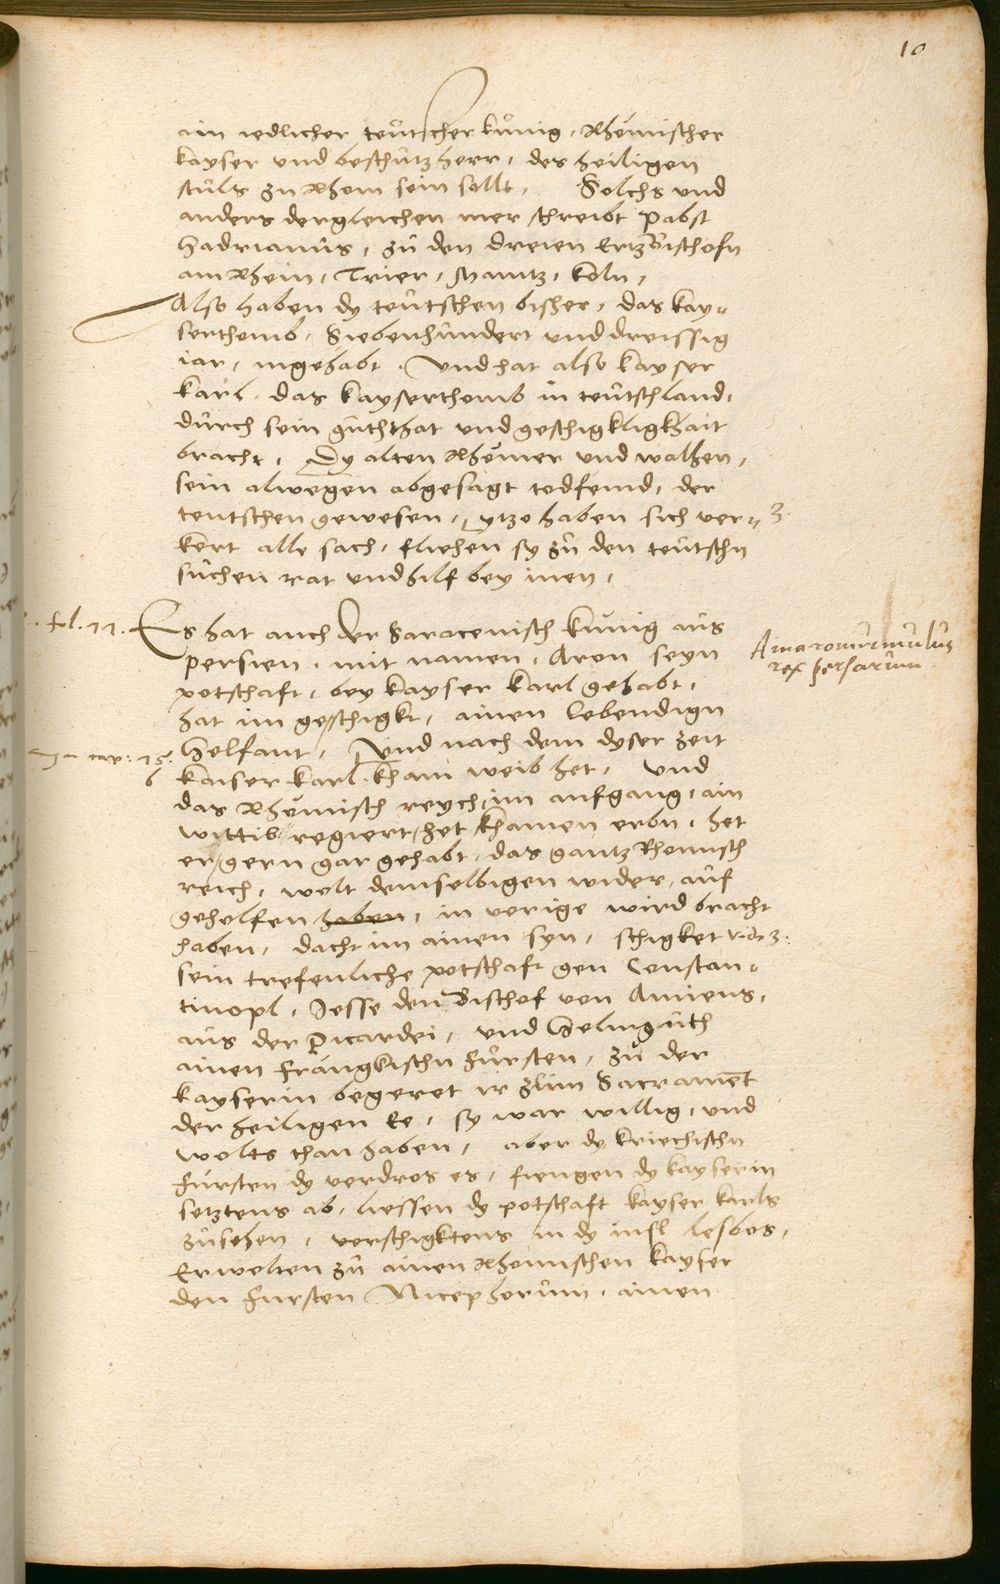 10
ain iedlicher teutscher kunig, Rhemischer
kayser und beschutzherr, des heiligen
stuls zu Rhom sein sollt, Solchs und
anders dergleichen mer schreibt pabst
Hadrianus, zu den dreien Ertzbischofn
am Rhein, Trier, Maintz, Koln,
Also haben dy teutschen bisher, das kay„
serthomb, Siebenhundert und dreissig
iar, ingehabt. Und hat also kayser
karl, das kayserthomb in teutschland,
durch sein guththat und geschigkligkhait
bracht, Dy alten Rhemer und walhen,
sein alwegen abgesagt todfeind, der
teutschen gewesen, ytzo haben sich ver„
kert alle sach, fliehen sy zu den teutschn
suchen rat und hilf bey inen,
fol. 11.
Es hat auch der Saracenisch kunig aus
persien, mit namen, Aron seyn
potschaft, bey kayser karl gehabt,
hat im geschigkt, ainen lebendign
Helfant, Und nach dem dyser zeit
kaiser karl khain weib het, und
das Rhemisch reych im aufgang, ain
wittib regiert, het khainen erbn, het
er gern gar gehabt, das gantz Rhomisch
reich, wolt demselbigen wider, auf
geholfen haben, in vorige wird bracht
haben, dacht im ainen syn, schigket
sein trefenliche potschaft gen Constan„
tinopl, Jesse den Bischof von Amiens,
aus der Picardei, und Helinguth
ainen frangkischn fursten, zu der
kayserin begeret ir zum Sacrament
der heiligen Ee, sy war willig, und
wolts than haben, aber dy kriechischn
fursten dy verdros es, fiengen dy kayserin
setztens ab, liessen dy potschaft kayser karls
zusehen, verschigktens in dy insl Lesbos,
Erwelten zu ainen Rhomischen kayser
den fursten Nicephorum, ainen
Amaromurmulus
rex persarum